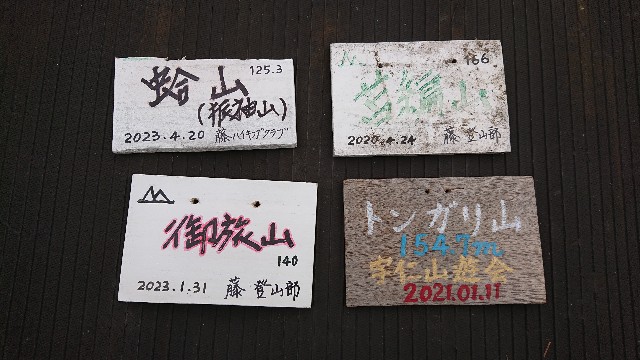 蛤山 125.3
(狐袖山)
2023.4.20 藤ハイキングクラブ
166
2020.4.24 藤 登山部
御旅山
140
2023.1.31 藤 登山部
トンガリ山
154.7m
宇仁山遊会
2021.01.11